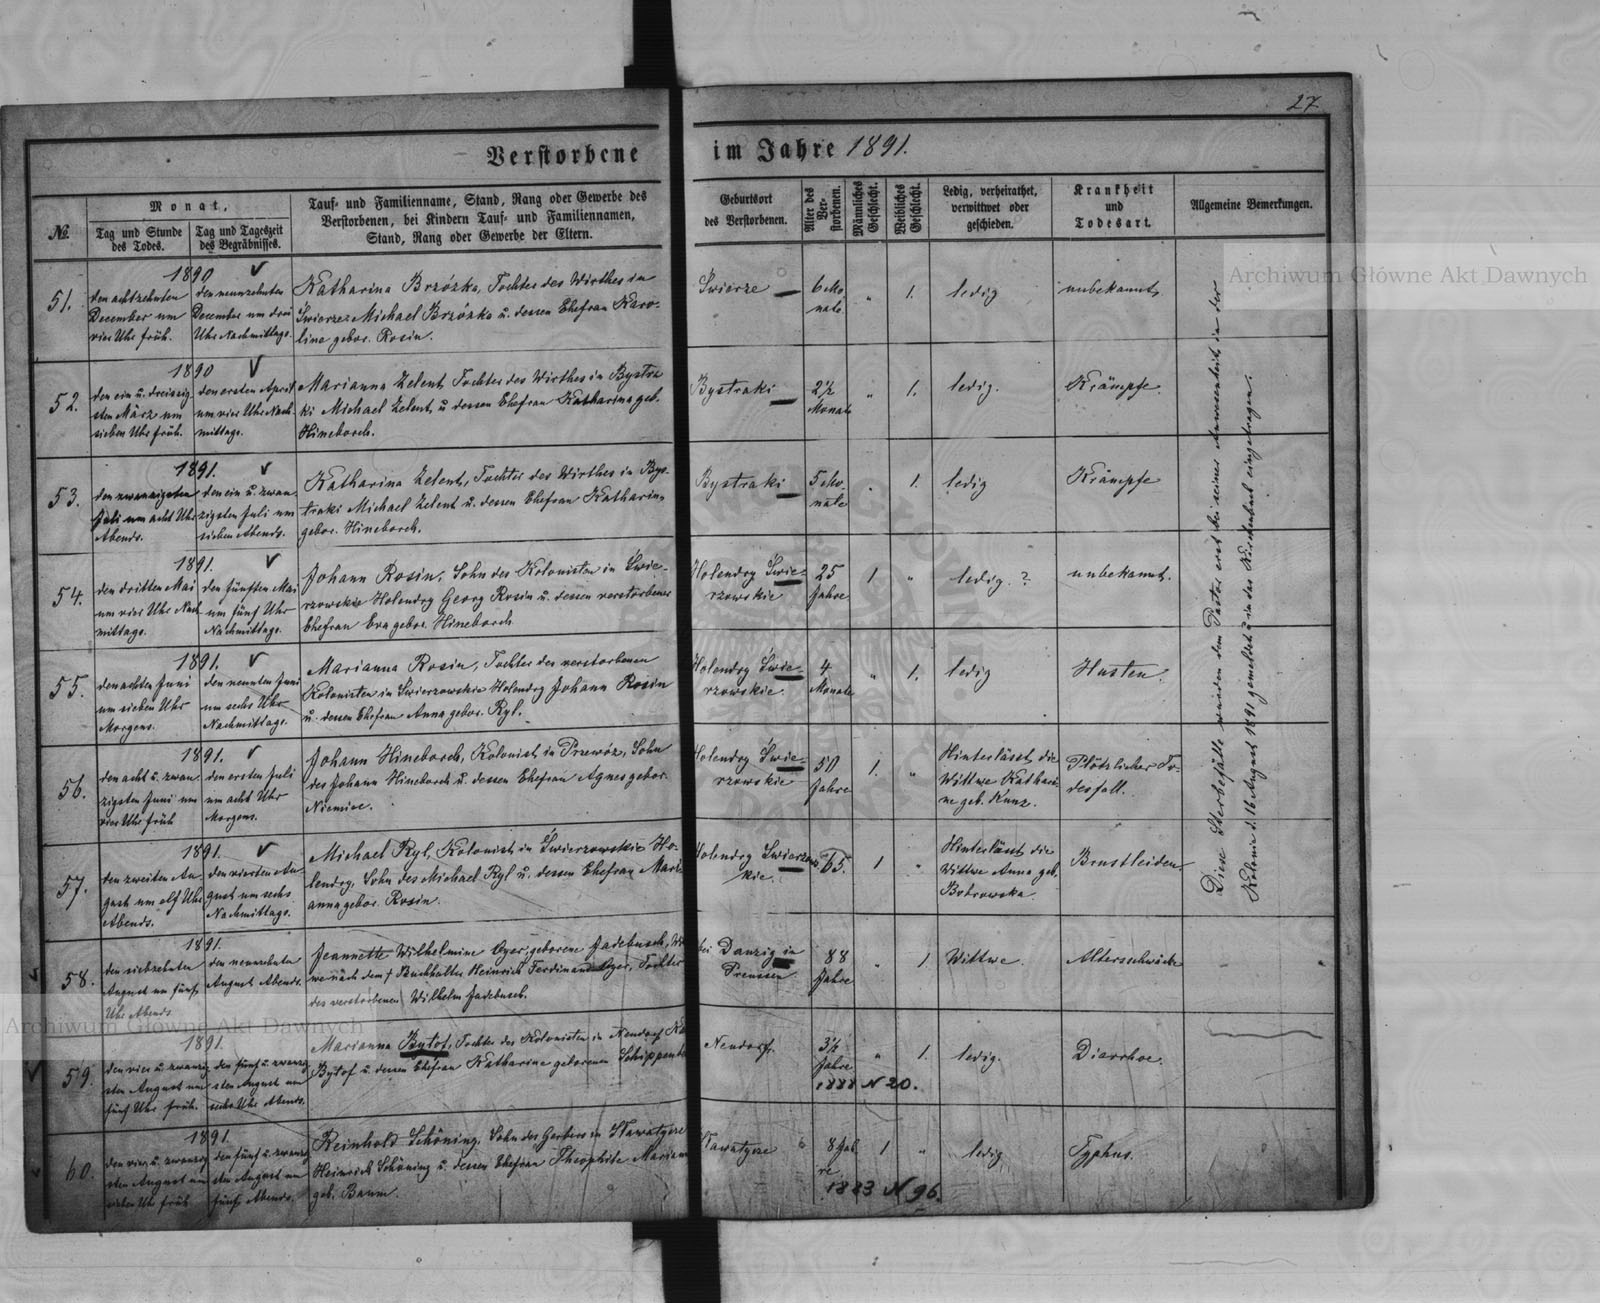 27
Verstorbene im Jahre 1891.
№.
Monat,
Tag und Stunde des Todes.
Tag und Tageszeit des Begräbnisses.
Tauf- und Familienname, Stand, Rang oder Gewerbe des
Verstorbenen, bei Kindern Tauf- und Familiennamen,
Stand, Rang oder Gewerbe der Eltern.
Geburtsort
des Verstorbenen.
Alter des Verstorbenen.
Männliches Geschlecht.
Weibliches Geschlecht.
Ledig, verheirathet,
verwittwet oder
geschieden.
Krankheit
und
Todesart.
Allgemeine Bemerkungen.
51.
1890
den achtzehnten
December um
vier Uhr früh.
den neunzehnten
December um drei
Uhr Nachmittags.
Katharina Brzózka, Tochter des Wirthes in
Świerze Michael Brzózka u. dessen Ehefrau Karo-
line gebor. Rosin.
Świerze
6 Mo
nate.
"
1.
ledig
unbekannt.
52.
1890
den ein u. dreissig
sten März um
sieben Uhr früh.
den ersten April
um vier Uhr Nach
mittags.
Marianna Zelent, Tochter des Wirthes in Bystra
ki Michael Zelent, u dessen Ehefrau Katharina geb.
Hineborch.
Bystraki
2½
Monate
"
1.
ledig.
Krämpfe.
53.
1891.
den zwanzigsten
Juli um acht Uhr
Abends.
den ein u. zwan
zigsten Juli um
sieben Abends.
Katharina Zelent, Tochter des Wirthes in Bys-
traki Michael Zelent u. dessen Ehefrau Katharina
gebor. Hineborch.
Bystraki
5 Mo-
nate
"
1.
ledig
Krämpfe
54.
1891.
den dritten Mai
um vier Uhr Nach
mittags.
den fünften Mai
um fünf Uhr
Nachmittags.
Johann Rosin, Sohn des Kolonisten in Świe-
rzowskie Holendry Georg Rosin u. dessen verstorbener
Ehefrau Eva gebor. Hineborch
Holendry Świe-
rzowskie
25
Jahre
1
"
ledig. ?
unbekannt.
55.
1891.
den achten Juni
um sieben Uhr
Morgens.
den neunten Juni
um sechs Uhr
Nachmittags.
Marianna Rosin, Tochter des verstorbenen
Kolonisten in Świerzowskie Holendry Johann Rosin
u. dessen Ehefrau Anna gebor. Ryl.
Holendry Świe-
rzowskie.
4
Monate
"
1.
ledig
Husten.
56.
1891.
den acht u. zwan
zigsten Juni um
vier Uhr früh
den ersten Juli
um acht Uhr
Morgens.
Johann Hineborch, Kolonist in Przewóz, Sohn
des Johann Hineborch u. dessen Ehefrau Agnes gebor.
Holendry Świe-
rzowskie
50
Jahre
1.
"
Hinterlässt die
Wittwe Kathari-
na geb. Kunz.
Plötzlicher To-
desfall.
57.
1891.
den zweiten Au-
gust um elf Uhr
Abends.
den vierten Au-
gust um sechs
Nachmittags.
Michael Ryl, Kolonist in Świerzowskie Ho-
lendry, Sohn des Michael Ryl u. dessen Ehefrau Mari-
anna gebor. Rosin.
Holendry Świerzows
kie.
65.
1
"
Hinterlässt die
Wittwe Anna geb.
Botrowska.
Brustleiden.
Diese Sterbefälle wurden dem Pastor erst bei seiner Anwesenheit in der
Kolonie d. 16 August 1891 gemeldet u in das Kirchenbuch eingetragen.
58.
1891.
den siebzehnten
August um fünf
Uhr Abends
den neunzehnten
August Abends.
Jeannette Wilhelmine geborene Jadebusch, Wit
we nach dem † Buchhalter Heinrich Ferdinand Tochter
des verstorbenen Wilhelm Jadebusch.
bei Danzig in
Preussen.
88
Jahre
"
1
Wittwe.
Altersschwäche
59.
1891.
den vier u. zwanzig
sten August um
fünf Uhr früh.
den fünf u. zwanzig
sten August um
sechs Uhr Abends.
Marianna Bytof, Tochter des Kolonisten in Neudorf
Bytof u. dessen Ehefrau Katharine geborenen
Neudorf.
3½
Jahre
1888 N 20.
"
1.
ledig.
Diarrhoe.
60.
1891.
den vier u. zwanzig
sten August um
sieben Uhr früh
den fünf u. zwanzig
sten August um
fünf Abends.
Reinhold Schöning, Sohn des Gerbers in Sławatycze
Heinrich Schöning u. dessen Ehefrau Theophile Mariane
geb. Baum.
Sławatycze
8 Jah
re
1883 N 96.
1
"
ledig
Typhus.
Archiwum Główne Akt Dawnych
Archiwum Główne Akt Dawnych